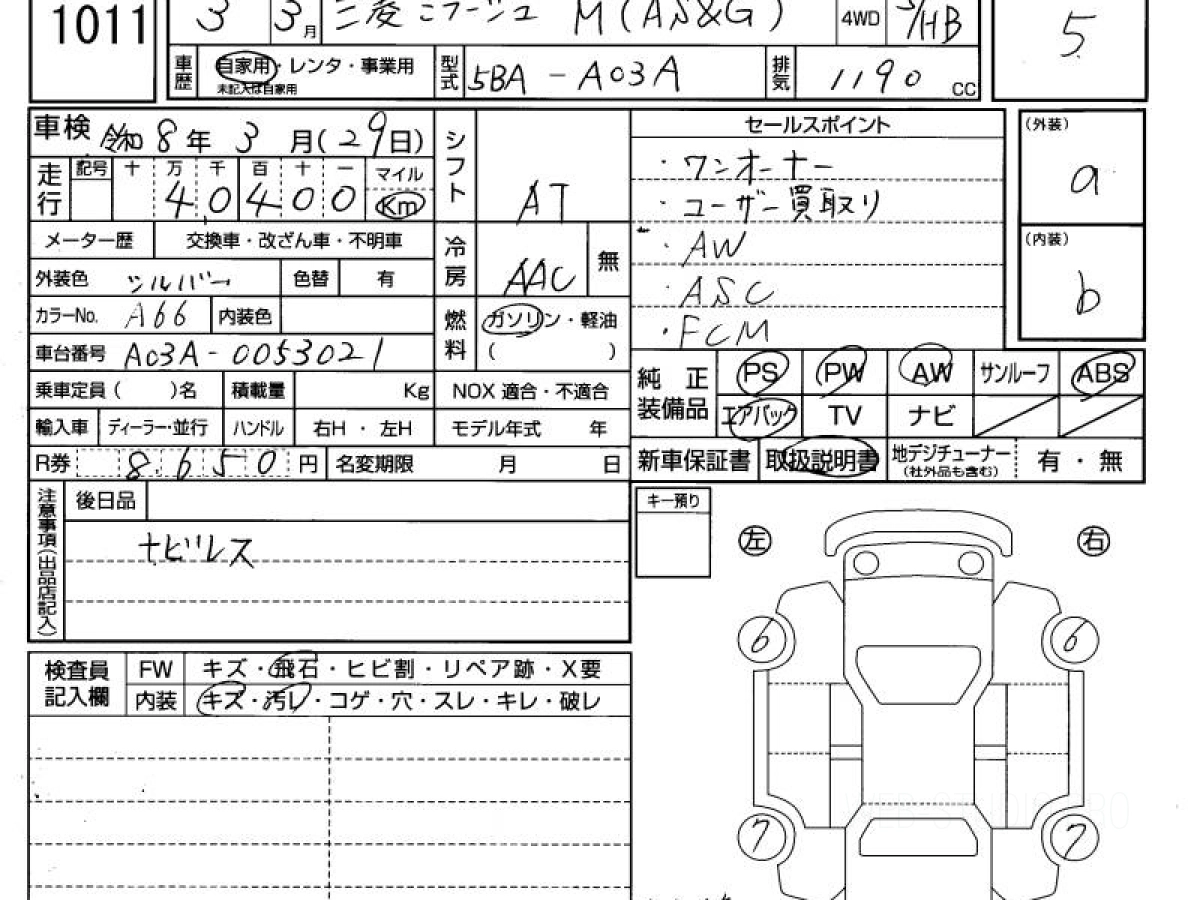 1011
3 3月 三菱 ミラージュ M(AS&G) 4WD 5/HB 5
車歴 自家用・レンタ・事業用
未記入は自家用
型式 5BA - A03A 排気 1190 CC
車検 令和 8年 3月(29日)
走行 記号 十 万 千 百 十 一 マイル
40400 Km
メーター歴 交換車・改ざん車・不明車
外装色 シルバー 色替 有
カラーNo. A66 内装色
車台番号 A03A-0053021
乗車定員( )名 積載量 Kg
輸入車 ディーラー・並行 ハンドル 右H ・ 左H
R券 8,650 円 名変期限 月 日
シフト AT
冷房 AAC 無
燃料 ガソリン・軽油
( )
NOX 適合・不適合
モデル年式 年
セールスポイント
・ワンオーナー
・ユーザー買取り
・AW
・ASC
・FCM
(外装)
a
(内装)
b
純正装備品 PS PW AW サンルーフ ABS
エアバック TV ナビ
新車保証書 取扱説明書 地デジチューナー
(社外品も含む) 有・無
注意事項(出品店記入)
後日品
ナビレス
キー預り
左 右
6 6
7 7
検査員記入欄
FW キズ・飛石・ヒビ割・リペア跡・X要
内装 キズ・汚レ・コゲ・穴・スレ・キレ・破レ